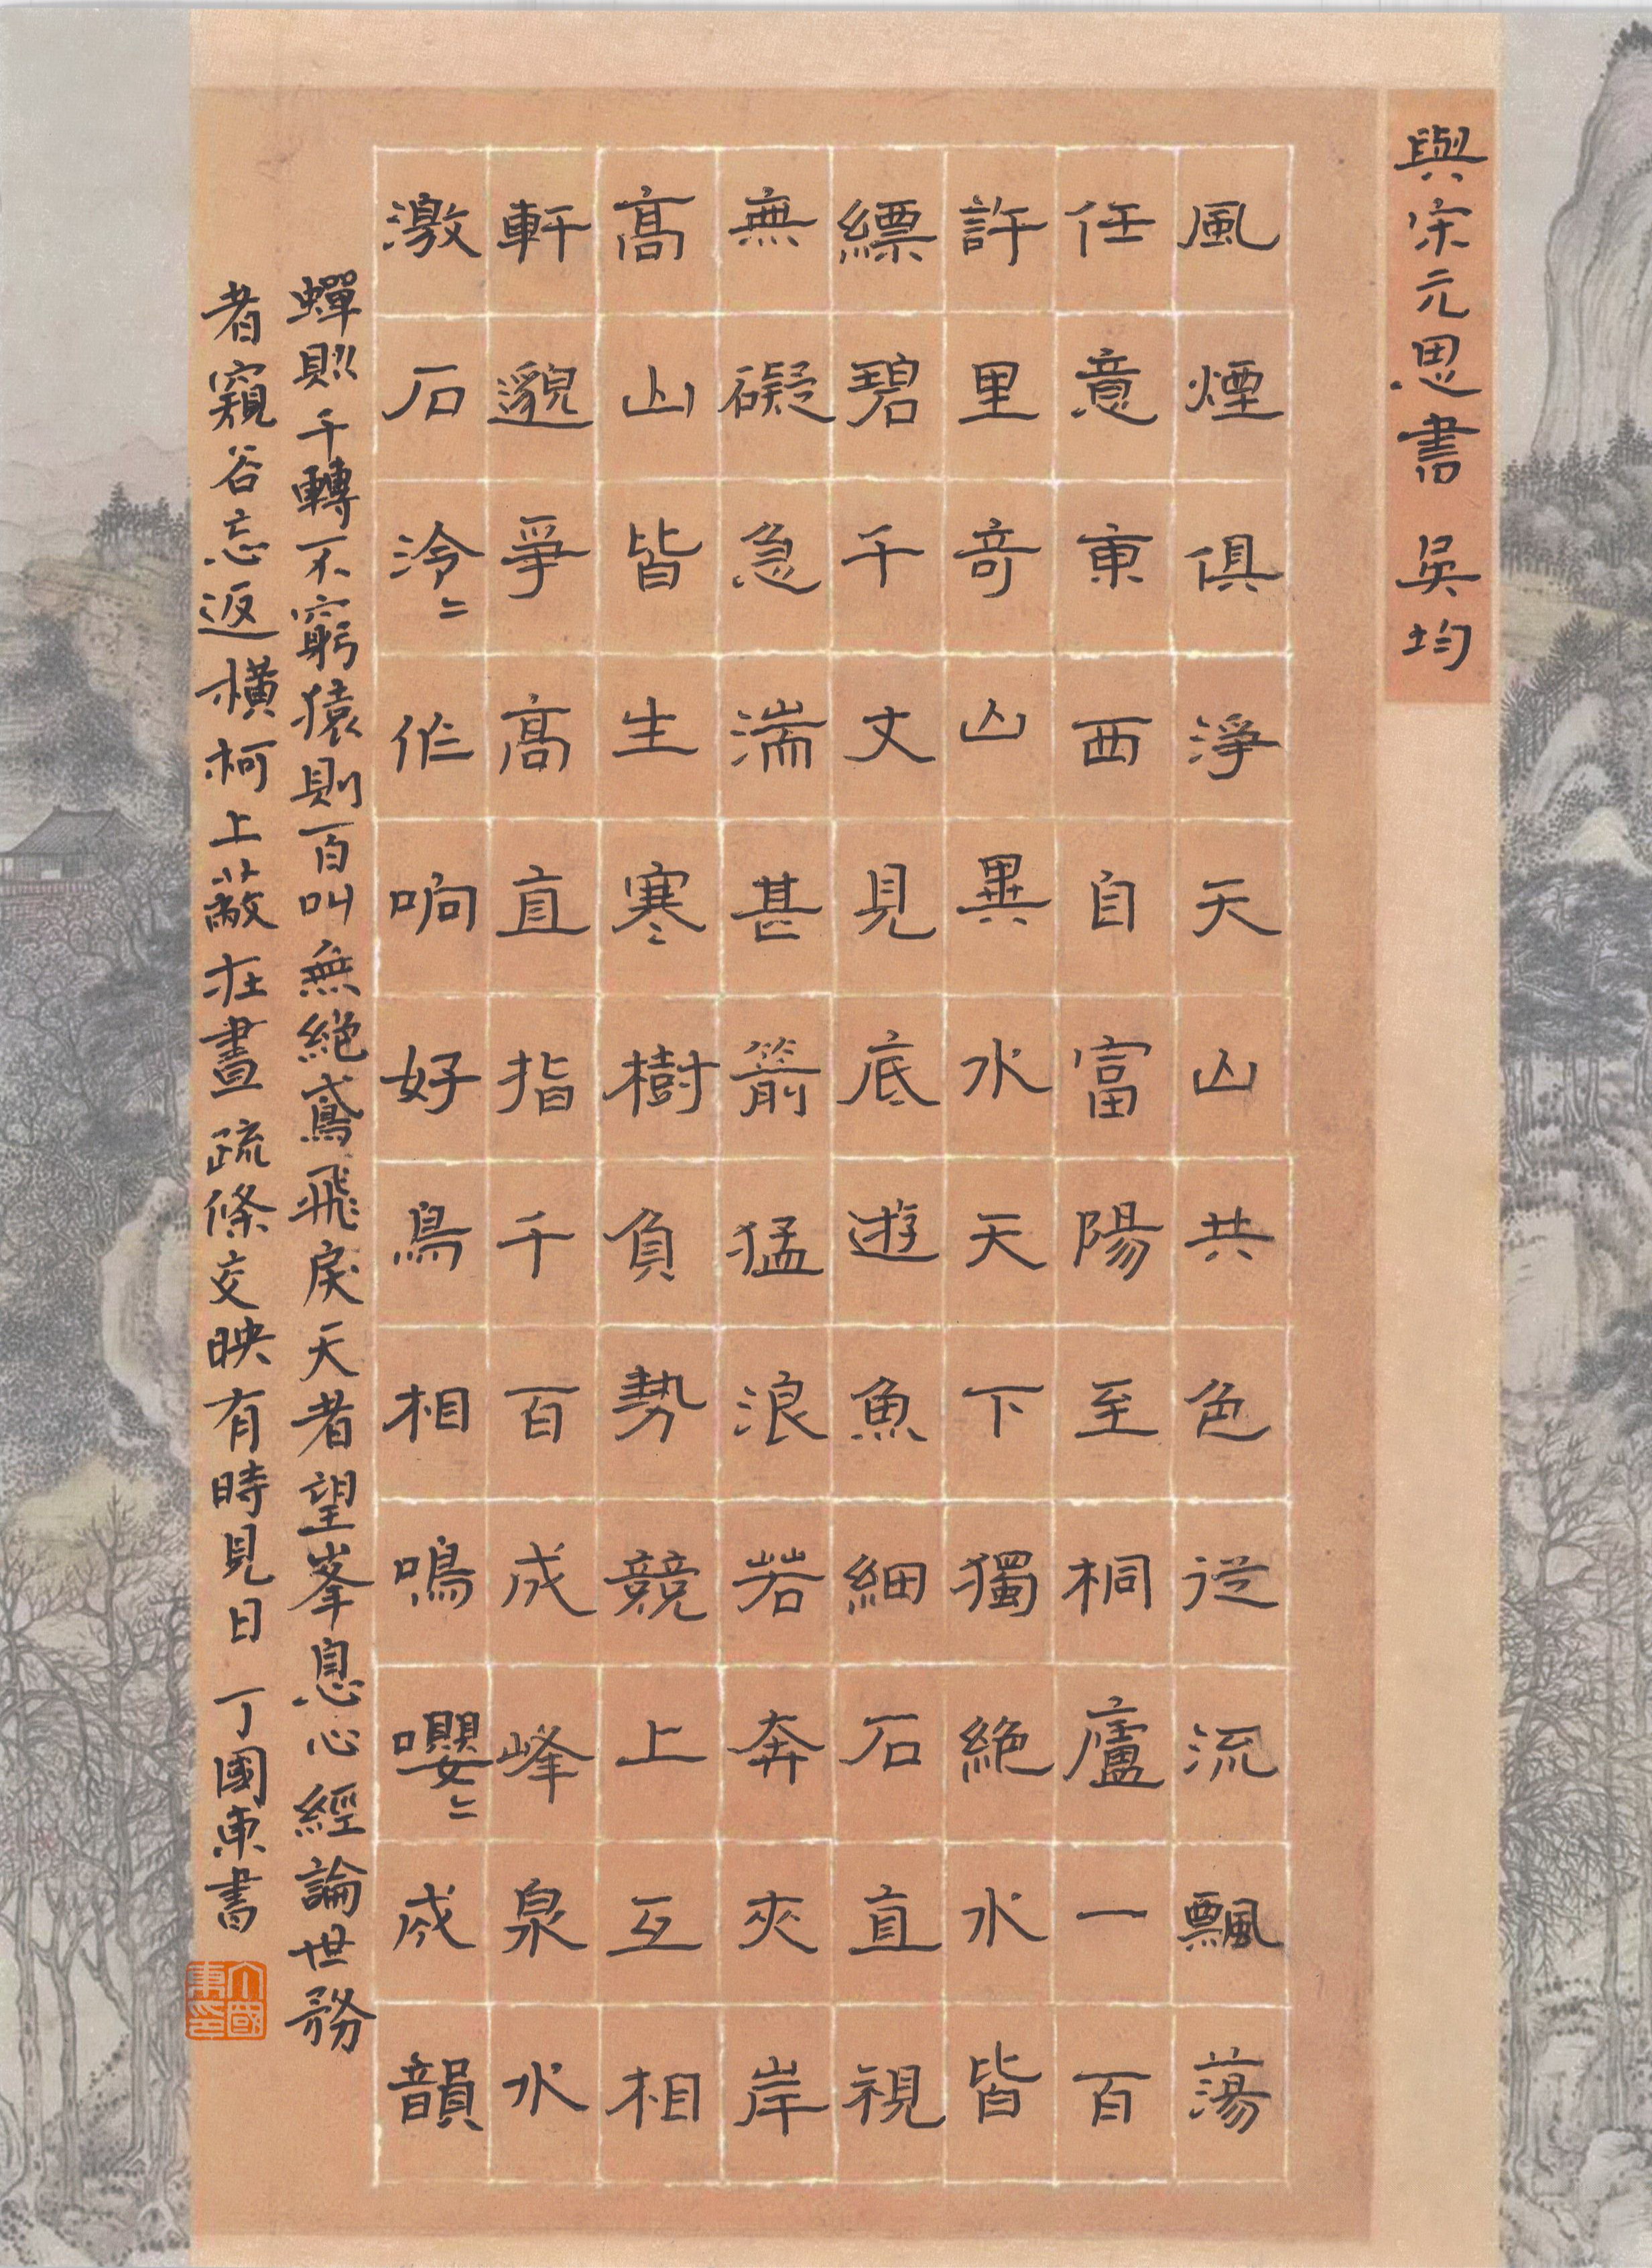 與宋元思書 吳均
風煙俱淨天山共色從流飄蕩
任意東西自富陽至桐廬一百
許里奇山異水天下獨絕水皆
縹碧千丈見底遊魚細石直視
無礙急湍甚箭猛浪若奔夾岸
高山皆生寒樹負勢競上互相
軒邈爭高直指千百成峰泉水
激石泠〻作响好鳥相鳴嚶〻成韻
蟬則千轉不窮猿則百叫無絕鳶飛戾天者望峯息心經論世務
者窺谷忘返橫柯上蔽在晝疏條交映有時見日 丁國東書
丁國東印